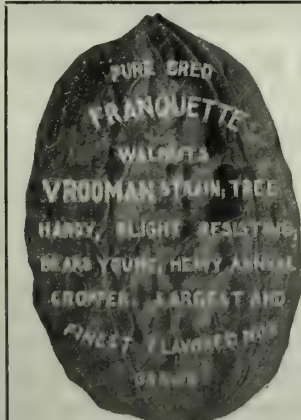 PURE BRED
FRANQUETTE
WALNUTS
VROOMAN STRAIN, TREE
HARDY, BLIGHT RESISTING,
BEARS YOUNG, HEAVY ANNUAL
CROPPER. LARGEST AND
FINEST FLAVORED NUT
GROWN